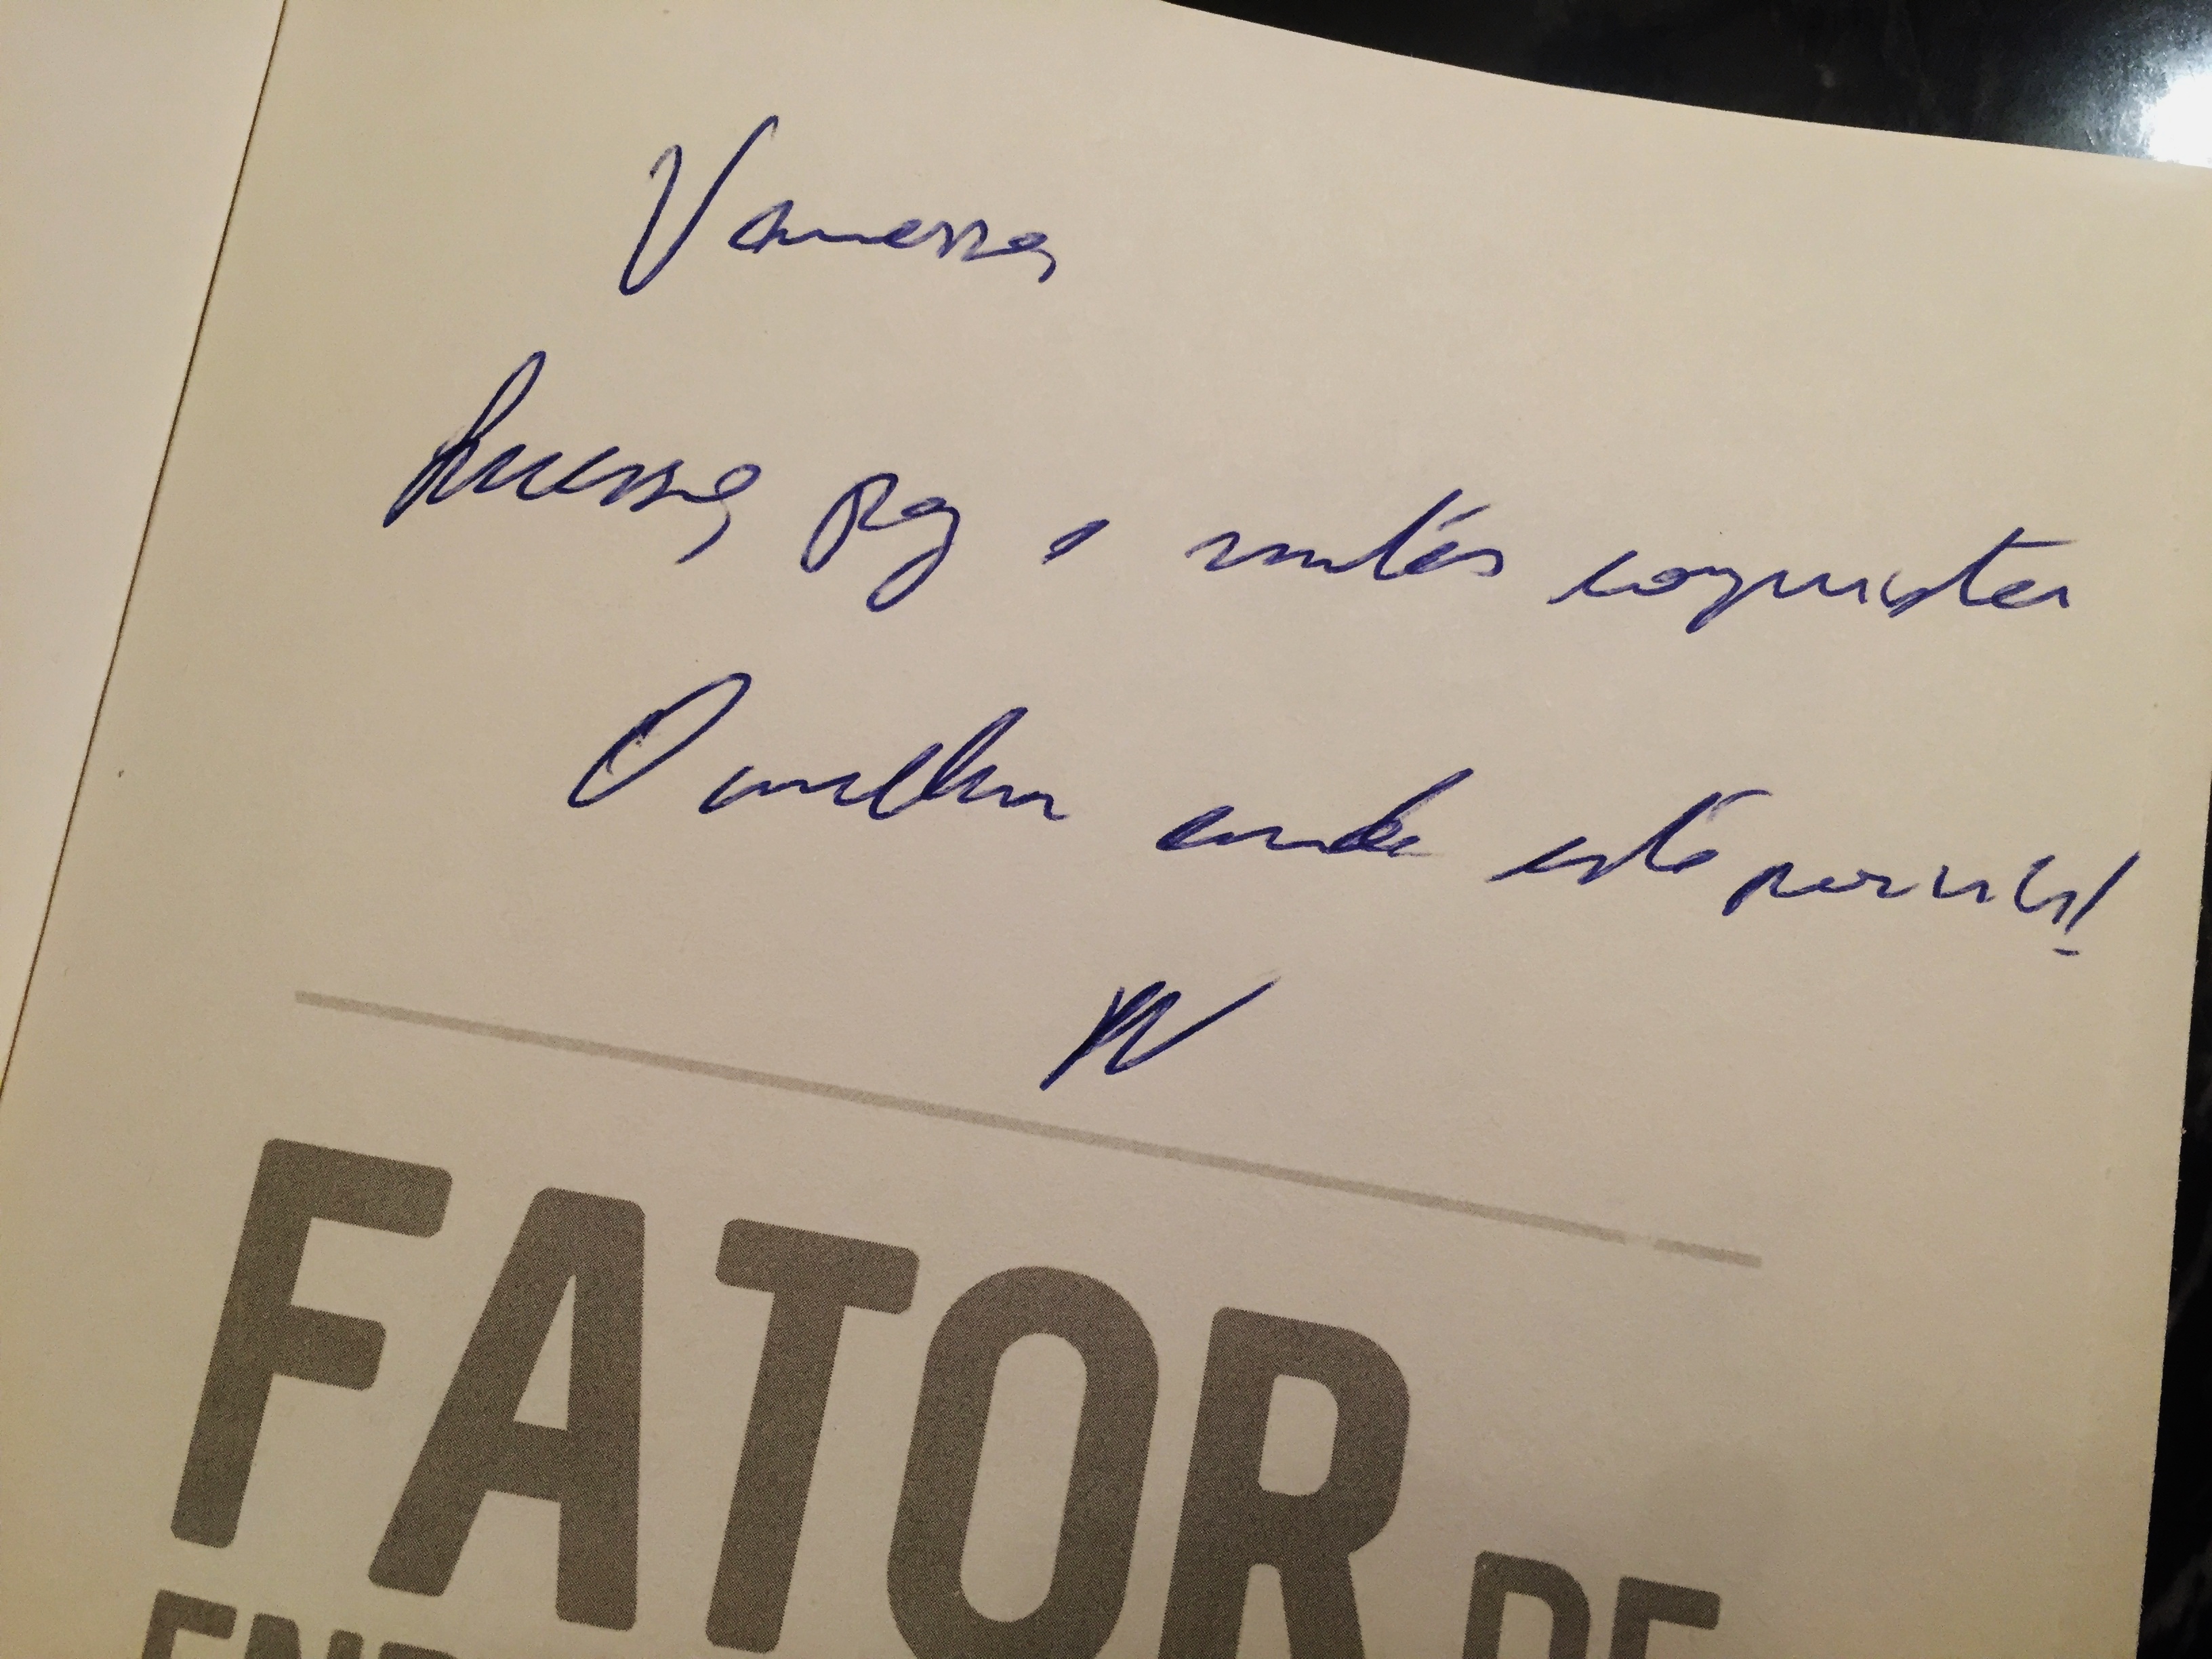 Vanessa,
Sucesso, paz e muitas conquistas
O melhor ainda está por vir!
FATOR DE